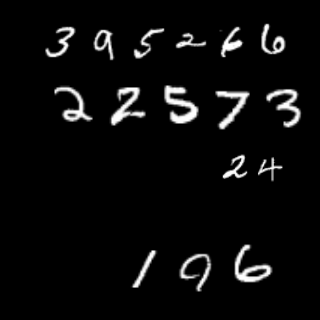 395266
22573
24
196